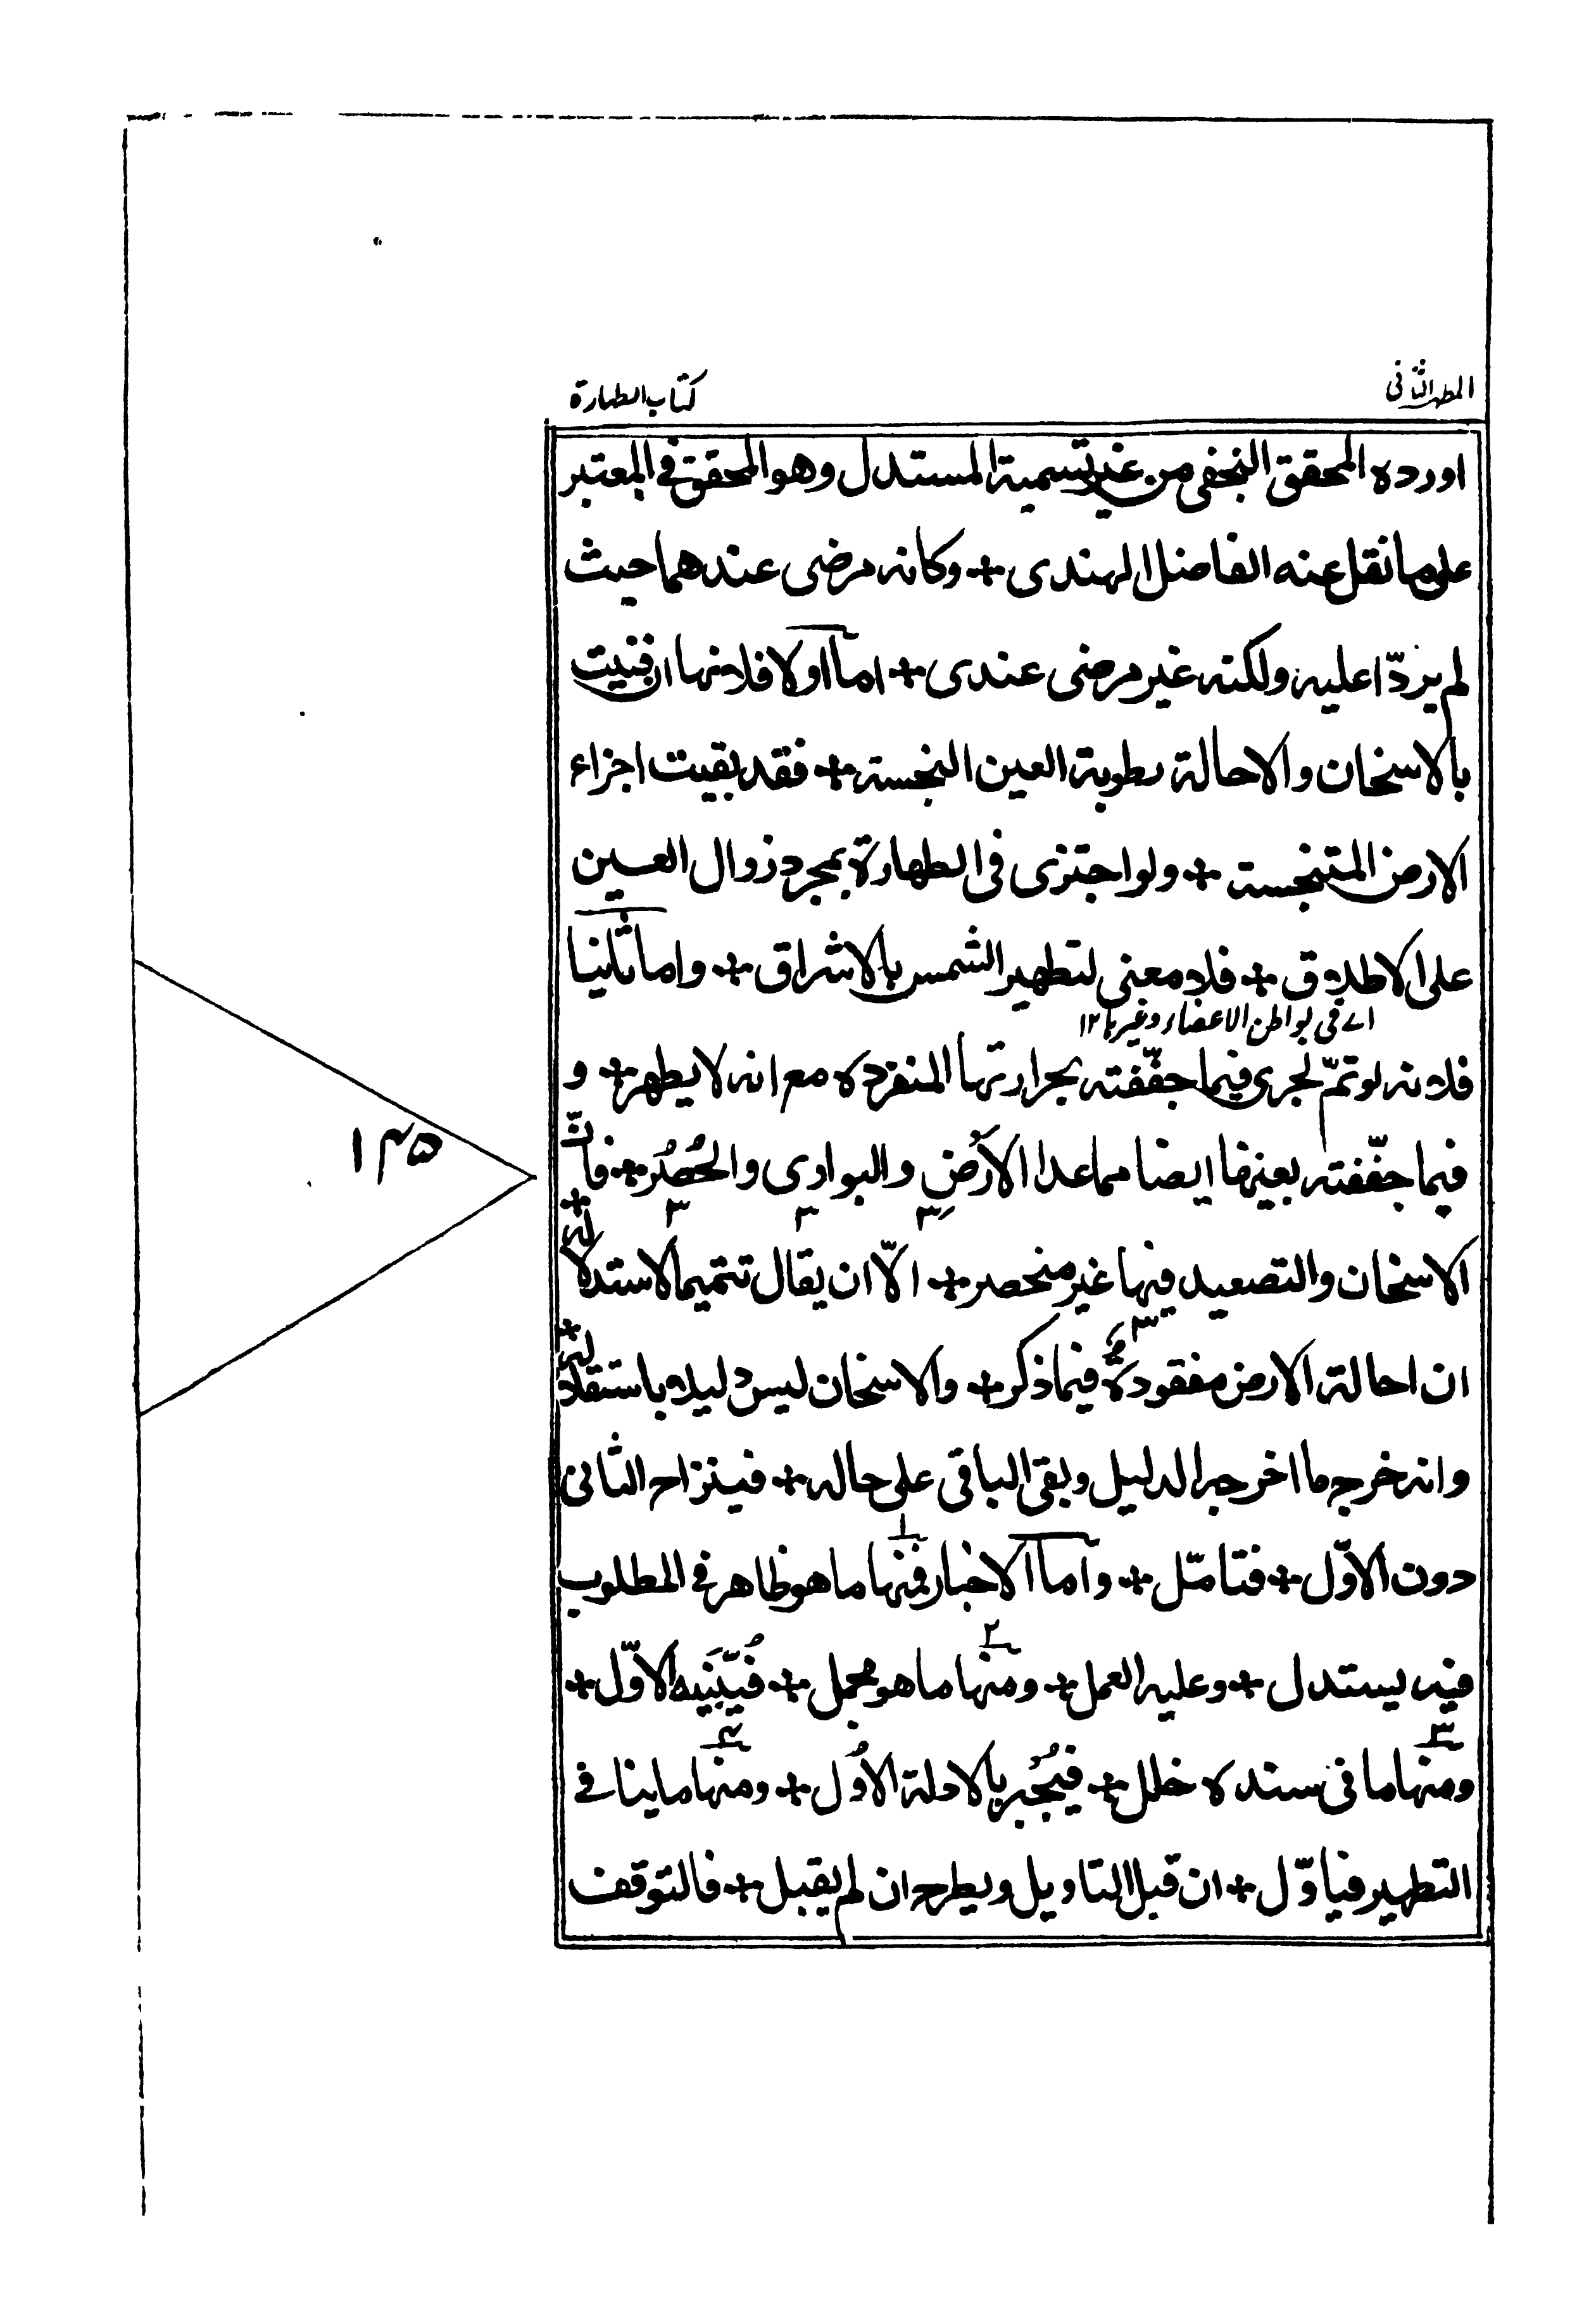 المطهر الثانى
كتاب الطهارة
اورده المحقق النجفى من غير تسمية المستدل وهو المحقق فى المعتبر
على ما نقل عنه الفاضل الهندى + وكانه مرضى عندهما حيث
لم يردّا عليه ولكنه غير مرضى عندى + اما اولا فلانها ان فنيت
بالاسخان والاحالة رطوبة العين النجسة + فقد بقيت اجزاء
الارض المتنجسة + ولو اجتزى فى الطهارة بمجرد زوال العين
على الاطلاق + فلا معنى لتطهير الشمس بالاشراق + واما ثانيا
اے فى بواطن الاعضاء وغيرها ١٢
فلانه لو تمّ لجرى فيما جفّفته بحرارتها المنفرده مع انه لا يطهر + و
فيما جفّفته بعينها ايضا مما عدا الارض والبوارى والحُصُر + فانّ
٣ ٣ ٣
الاسخان والتصعيد فيها غير منحصر + الّا ان يقال تتميما لاستدلاله +
ان احالة الارض مفقودة فيما ذكر + والاسخان ليس دليلا باستقلاله +
وانه خرج ما اخرجه الدليل وبقى الباقى على حاله + فينزاح الثانى
دون الاوّل + فتامّل + واما الاخبار فمنها ما هو ظاهر فى المطلوب
فيه يستدل + وعليه العمل + ومنها ما هو مجمل + فيُبَيّنه الاوّل +
ومنها ما فى سنده خلل + فيُجبر بالادلة الاُوَل + ومنها ما ينافى
التطهير فياوّل + ان قبل التاويل ويطرح ان لم يقبل + فالتوقف
١٤٥